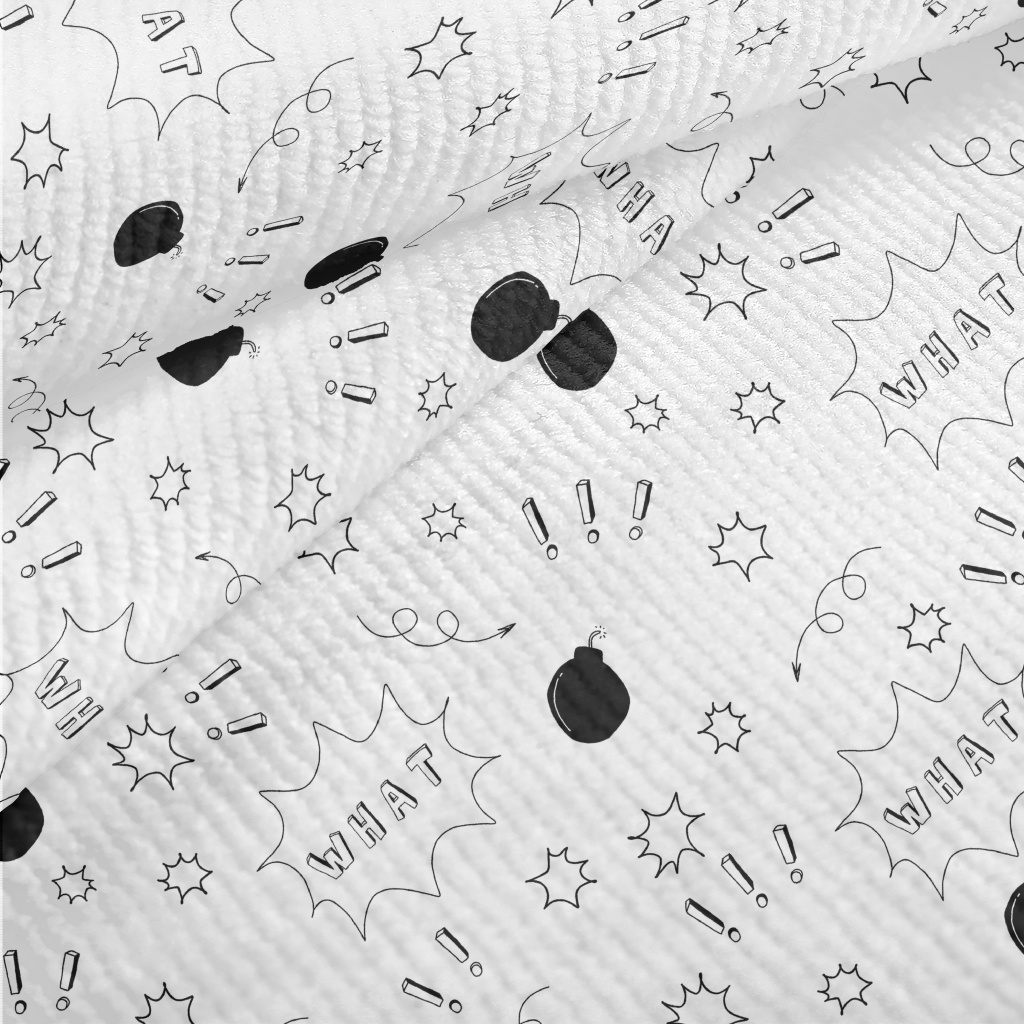 AT
WH
WHA
WHAT
!!!
WH
WHAT
WHAT